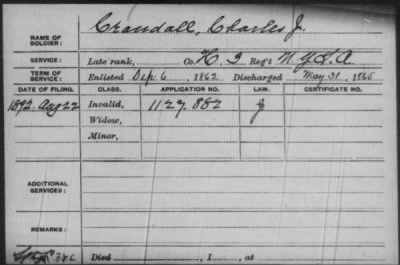 Crandall, Charles J.
NAME OF SOLDIER:
SERVICE: Late rank, Co. H. 3 Reg't N.Y.L.A
TERM OF SERVICE: Enlisted Sep 6, 1862 Discharged May 31, 1865
DATE OF FILING. CLASS. APPLICATION NO. LAW. CERTIFICATE NO.
1892. Aug 22 Invalid, 1127.882
Widow,
Minor,
ADDITIONAL SERVICES:
REMARKS:
Died , 1 , at